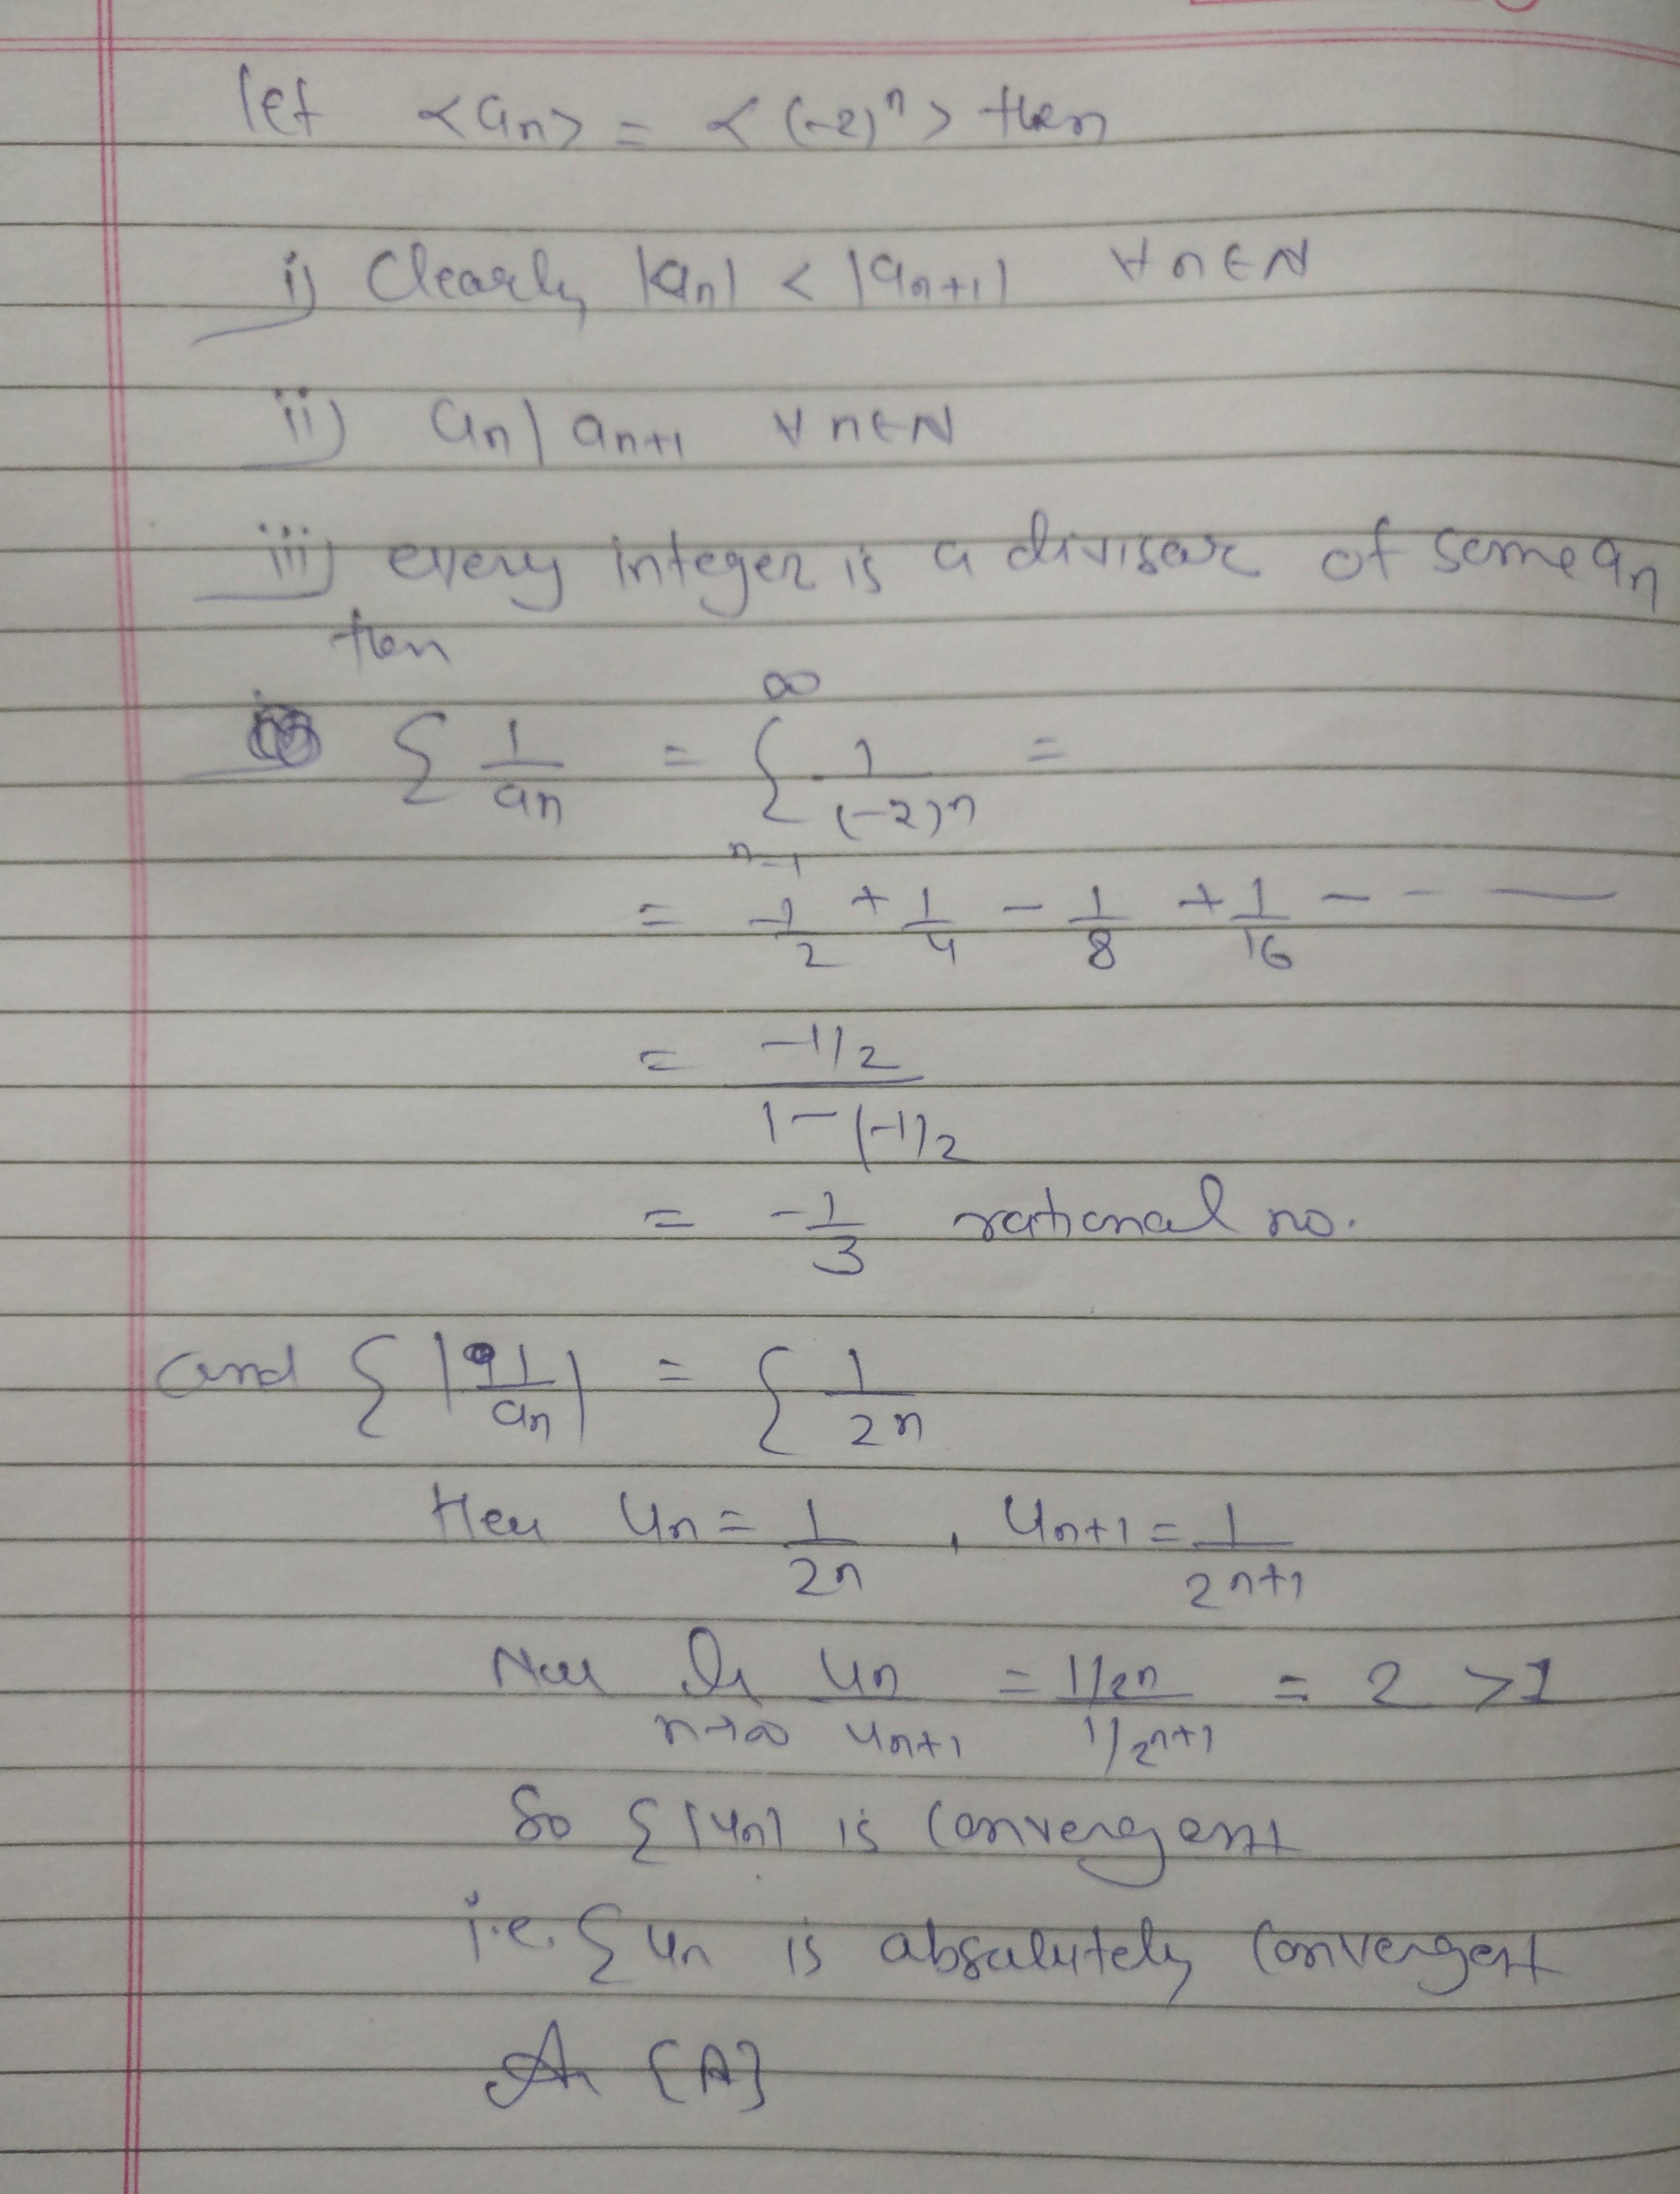 let <an> = <(-2)ⁿ> then
i) Clearly |an| < |an+1| ∀ n ∈ N
ii) an | an+1 ∀ n ∈ N
iii) every integer is a divisor of some an
then
Σ 1/an = ∞ Σ n=1 1/(-2)ⁿ =
= -1/2 + 1/4 - 1/8 + 1/16 - - —
= -1/2 / 1-(-1)/2
= -1/3 rational no.
and Σ |1/an| = Σ 1/2ⁿ
Here un = 1/2ⁿ , un+1 = 1/2ⁿ⁺¹
Now lt n→∞ un/un+1 = 1/2ⁿ / 1/2ⁿ⁺¹ = 2 > 1
So Σ|un| is convergent
i.e. Σ un is absolutely convergent
[A]